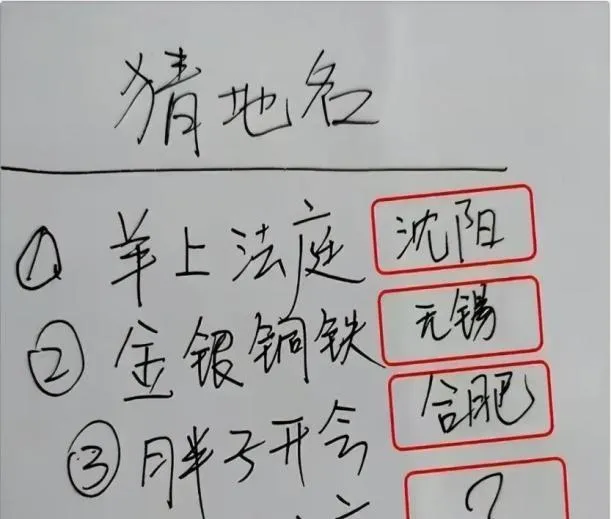 猜地名
① 羊上法庭 沈阳
② 金银铜铁 无锡
③ 胖子开会 合肥
?